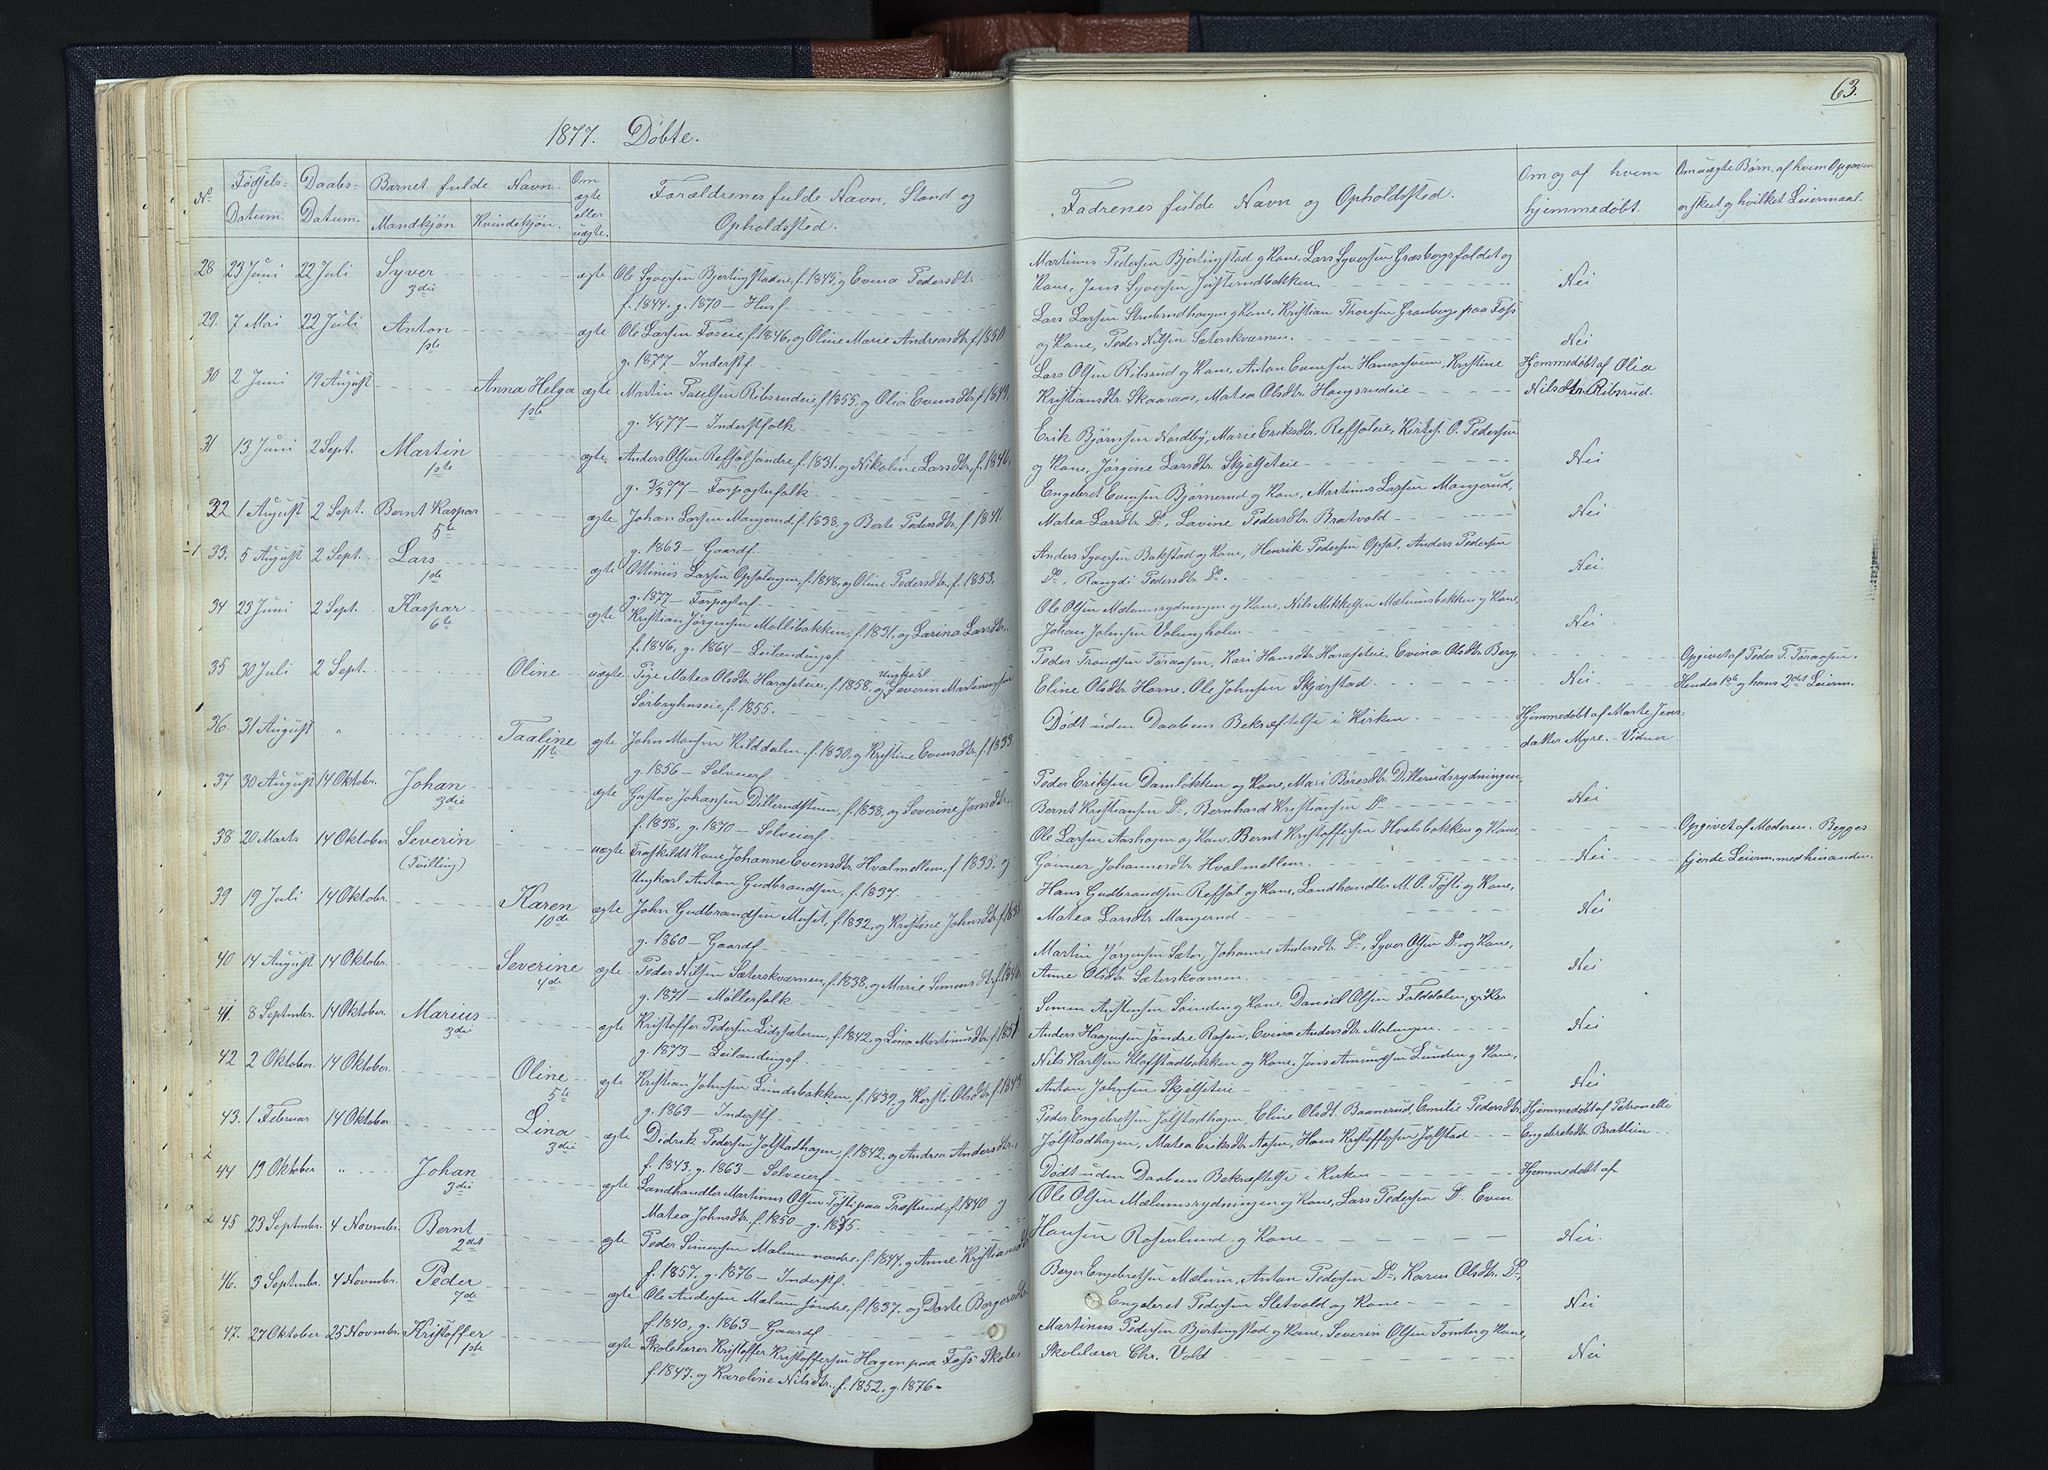 63.
1877. Døbte.
No Fødsels-Datum. Daabs-Datum. Barnet fulde Navn. Mandkjøn Kvindekjøn. Om ægte eller uægte. Forældrenes fulde Navn, Stand og Opholdssted.
Fadrenes fulde Navn og Opholdssted. Om og af hvem hjemmedøbt. Om uægte Børn, af hvem Opgaven er skeet og hvilket Leiermaal.
28 23 Juni 22 Juli Syver 3die ægte Ole Syversen Bjertingstadeie, f. 1845, og Evina Pedersdtr.
f. 1844. g. 1870 - Husf.
Martinus Pedersen Bjertingstad og Kone, Lars Syversen Græsbergsfaldet og
Kone, Jens Syversen Nei
29. 7 Mai 22 Juli Anton 1ste ægte Ole Larsen Foseie, f. 1846, og Oline Marie Andreasdtr. f. 1850
g. 1877 - Inderstf.
Lars Larsen og Kone, Kristian Thoresen Granberg, paa Foss
og Kone, Peder Nilsen Sæterskværnen. Nei
30 2 Juni 19 August Anna Helga 1ste ægte Martin Paulsen Ribsrudeie, f. 1855, og Olia Evensdtr. f. 1849.
g. 1/4 77 - Inderstfolk
Lars Olsen Ribsrud og Kone, Anton Evensen Kristine Hjemmedøbt af Olia
Kristiansdtr. Skaaraas, Matea Olsdtr. Haugsrudeie Nilsdtr. Ribsrud.
31 13 Juni 2 Sept. Martin 1ste ægte Anders Olsen Refsøl søndre, f. 1831, og Nikoline Larsdtr. f. 1846,
g. 3/3 77 - Forpagterfolk
Erik Bjørnsen Nordby, Marie Eriksdtr. Refsøleie, Kirkes. O. Pedersen
og Kone, Jørgine Larsdtr. Skjelseteie Nei
32 1 August 2 Sept. Bernt Kaspar 5te ægte Johan Larsen Mangerud, f. 1838, og Berte Pedersdtr. f. 1841.
g. 1863 - Gaardf.
Engebret Evensen Bjørnerud og Kone, Martinus Larsen Mangerud,
Matea Larsdtr. Do, Lavine Pedersdtr. Bratvold Nei
33. 5 August 2 Sept. Lars 1ste ægte Ottinius Larsen Opsalengen, f. 1848, og Oline Pedersdtr. f. 1853,
g. 1877 - Forpagterf.
Anders Syversen Bakstad og Kone, Henrik Pedersen Opsal, Anders Pedersen
Do, Rangdi Pedersdtr. Do. Nei.
34 23 Juni 2 Sept. Kaspar 6te ægte Kristian Jørgensen Møllibakken, f. 1831, og Larina Larsdtr.
f. 1846, g. 1864 - Leilendingsf.
Ole Olsen Mælumsrydningen og Kone, Nils Mikkelsen Mælumsbakken og Kone,
Johan Johnsen Volungholen Nei.
35 30 Juli 2 Sept. Oline uægte Pige Matea Olsdtr. Haraseteie, f. 1858, og Ungkarl Severin Martinussen
f. 1855.
Peder Trondsen Toraasen, Kari Hansdtr. Haraseteie, Evina Olsdtr. Berg, Opgivet af Peder T. Toraasen.
Eline Olsdtr. Horne, Ole Johnsen Skjærstad Nei Hendes 1ste og hans 2det Leierm.
36 31 August " Paaline 11te ægte John Monsen Kilddalen, f. 1830, og Kristine Evensdtr. f. 1833
g. 1856 - Selveierf.
Dødt uden Daabens Bekræftelse i Kirken. Hjemmedøbt af Marte Jens-
datter Myre. - Vidner
37 30 August 14 Oktobr. Johan 3die ægte Gustav Johansen Dillerudstuen, f. 1838, og Severine Jensdtr.
f. 1838, g. 1870 - Selveierf.
Peder Eriksen Damløkken og Kone, Mari Boresdtr. Dillerudsrydningen,
Bernt Kristiansen Do, Bernhard Kristiansen Do Nei
38 20 Marts 14 Oktober Severin (Tvilling) uægte Fraskildt Kone Johanne Evensdtr. Hvalmellem, f. 1835. og
Ungkarl Anton Gudbrandsen, f. 1837.
Ole Larsen Aashagen og Kone, Bernt Kristoffersen Hvalsbakken og Kone, Opgivet af Moderen. Begges
Johannesdtr. Hvalmellem. Nei fjerde Leierm. med hinanden.
39 19 Juli 14 Oktobr. Karen 10de ægte John Gudbrandsen Muset, f. 1832, og Kristine Johnsdtr. f. 1835
g. 1860 - Gaardf.
Hans Gudbrandsen Refsøl og Kone, Landhandler M. O. Tøfte og Kone,
Matea Larsdtr. Mangerud Nei
40 14 August 14 Oktobr. Severine 4de ægte Peder Nilsen Sæterskværnen, f. 1838, og Marie Simensdtr. f. 1846
g. 1871 - Møllerfolk
Martin Jørgensen Sæter, Johanne Andersdtr. Do, Syver Olsen Do, og Kone,
Anne Olsdtr. Sæterskværnen Nei
41. 8 Septmbr. 14 Oktober. Marius 3die ægte Kristoffer Pedersen Lidssæteren, f. 1842, og Lina Martinusdtr. f. 1851
g. 1873 - Leilendingsf.
Simen Austensen Sønden og Kone, Daniel Olsen Falddalen, og Ka
Anders Haagensen søndre Rosen, Evina Andersdtr. Molungen. Nei
42 2 Oktober 14 Oktober. Oline 5te ægte Kristian Johnsen Lundsbakken, f. 1839, og Kersti Olsdtr. f. 1843
g. 1869 - Inderstf.
Nils Karlsen Klofstadbakken og Kone, Jens Amundsen Lunden og Kone,
Anton Johnsen Skjelseteie Nei
43. 1 Februar 14 Oktober Lina 3die ægte Didrik Pedersen Jølstadhagen, f. 1842, og Andrea Andersdtr.
f. 1843, g. 1863 - Selveierf.
Peder Engebretsen Jølstadhagen, Eline Olsdt. Baanerud, Emilie Pedersdtr. Hjemmedøbt af Petronelle
Jølstadhagen, Matea Eriksdtr. Aasen, Hans Kristoffersen Jølstad Engebretsdtr. Bratlien
44 19 Oktober " Johan 3die ægte Landhandler Martinus Olsen Tøfte paa Præsterud, f. 1840 og
Matea Johnsdtr. f. 1850 - g. 1875.
Dødt uden Daabens Bekræftelse i Kirken Hjemmedøbt af
45 23 Septmbr. 4 Novmbr. Bernt 2det ægte Peder Simensen Mælum nordre, f. 1844, og Anne Kristiansdtr.
f. 1857, g. 1876 - Inderstf.
Ole Olsen Mælumsrydningen og Kone, Lars Pedersen Do. Even
Hansen Rosenlund og Kone Nei.
46. 3 Septmbr. 4 Novmbr. Peder 7de ægte Ole Andersen Mælum søndre, f. 1837. og Dorte Borgersdtr.
f. 1840, g. 1863 - Gaardf.
Borger Engebretsen Mælum, Anton Pedersen Do, Karen Olsdtr. Do,
Engebret Pedersen Sletvold og Kone Nei
47. 27 Oktober 25 Novmbr. Kristoffer 1ste ægte Skolelærer Kristoffer Kristoffersen Hagen paa Foss Skole,
f. 1847. og Karoline Nilsdtr. f. 1852, g. 1876.
Martinus Pedersen Bjertingstad og Kone, Severin Olsen Tomter og Kone,
Skolelærer Chr. Vold Nei